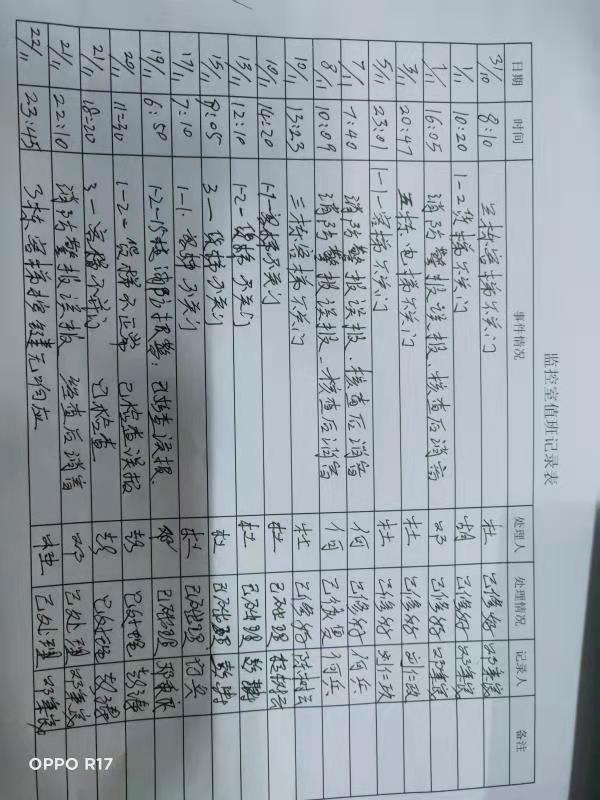 监控室值班记录表
日期 时间 事件情况 处理人 处理情况 记录人 备注
31/10 8:10 三栋客梯不关门 杜 已修好
1/11 10:20 1-2货梯不关门 胡 已修好
1/11 16:05 消防警报误报、核查后消音 邓 已修好
3/11 20:47 五栋电梯不关门 杜 已修好 刘仁政
5/11 23:01 1-1-客梯不关门 杜 已修好 刘仁政
7/11 7:40 消防警报误报、核查后消音 何 已修好 何兵
8/11 10:09 消防警报误报、核查后消音 何 已恢复 何兵
10/11 13:23 三栋客梯不关门 杜 已修好
10/11 14:20 1-1 客梯不关门 杜 已处理
13/11 12:10 1-2-货梯不关门 杜 已处理
15/11 9:05 3-货梯不关门 杜 已处理
17/11 7:10 1-1 客梯不关门 杜 已处理 何兵
19/11 6:50 1-2-15楼消防报警:已检查误报 邓 已处理
20/11 11:30 1-2-货梯不正常 已检查误报 彭 已处理 彭涛
21/11 18:20 3-客梯不关门 已检查 彭 已处理 彭涛
21/11 22:10 消防警报误报 经查后消音 邓 已处理
22/11 23:45 3栋客梯按键无响应 杜 已处理
OPPO R17